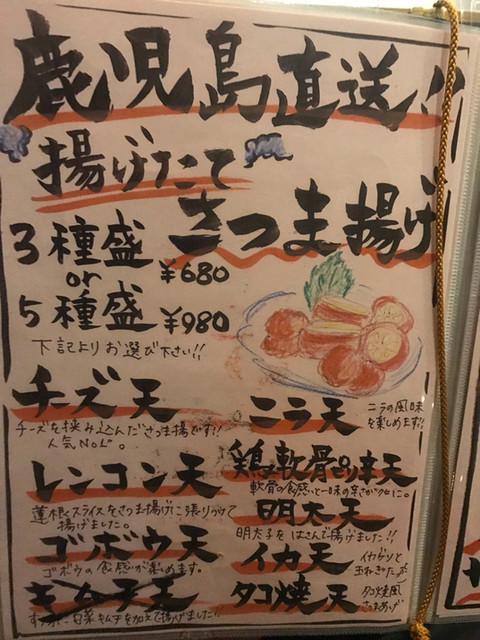 鹿児島直送!!
揚げたて
さつま揚げ
3種盛 ¥680
or
5種盛 ¥980
下記よりお選び下さい!!
チーズ天
チーズを挟み込んださつま揚です!!
人気No1。
レンコン天
蓮根スライスをさつま揚げに張りつけて
揚げました。
ゴボウ天
ゴボウの食感が楽めます。
キムチ天
白菜キムチを加えて揚げました!!
ニラ天
ニラの風味
を楽しめます!!
鶏軟骨ピリ辛天
軟骨の食感と一味の辛さが
明太天
明太子をはさんで揚げました!!
イカ天
イカゲソと
玉ねぎ
タコ焼天
タコ焼風
さつまあげ